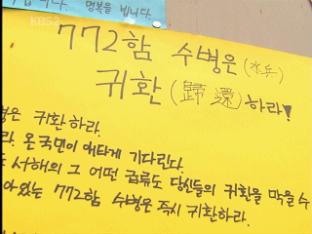 KBS
니다. 명복을 빕니다.
772함 수병은 (水兵)
귀환 (歸還) 하라!
병은 귀환하라.
라. 온 국민이 애타게 기다린다.
도 서해의 그 어떤 급류도 당신들의 귀환을 막을 수
아있는 772함 수병은 즉시 귀환하라.